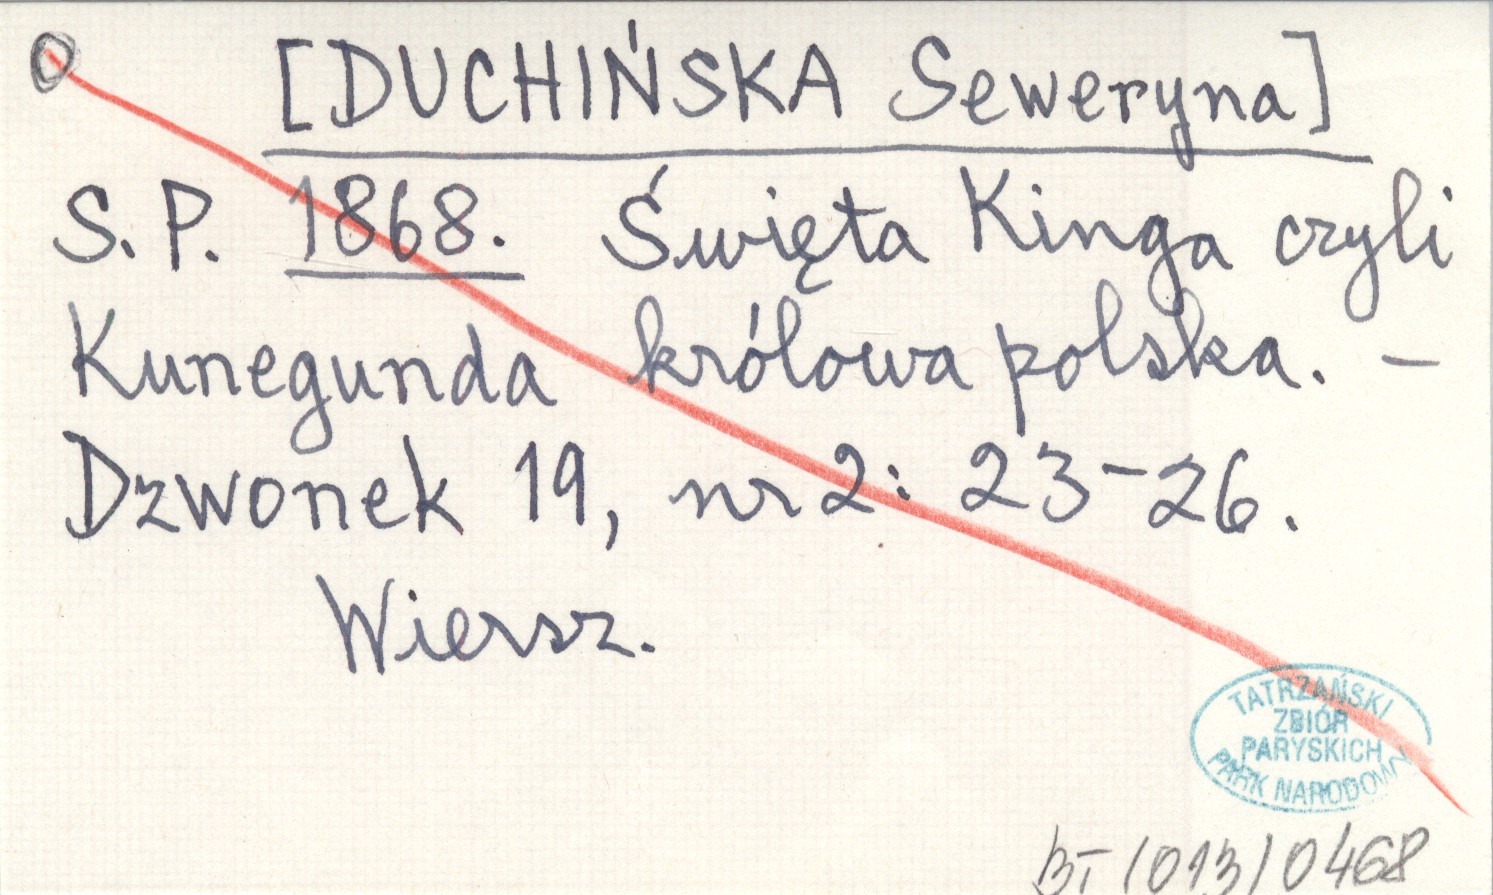 [DUCHIŃSKA Seweryna]
S. P. 1868. Święta Kinga czyli
Kunegunda królowa polska. –
Dzwonek 19, nr 2: 23–26.
Wiersz.
TATRZAŃSKI
ZBIÓR
PARYSKICH
PARK NARODOWY
BT/013/0468